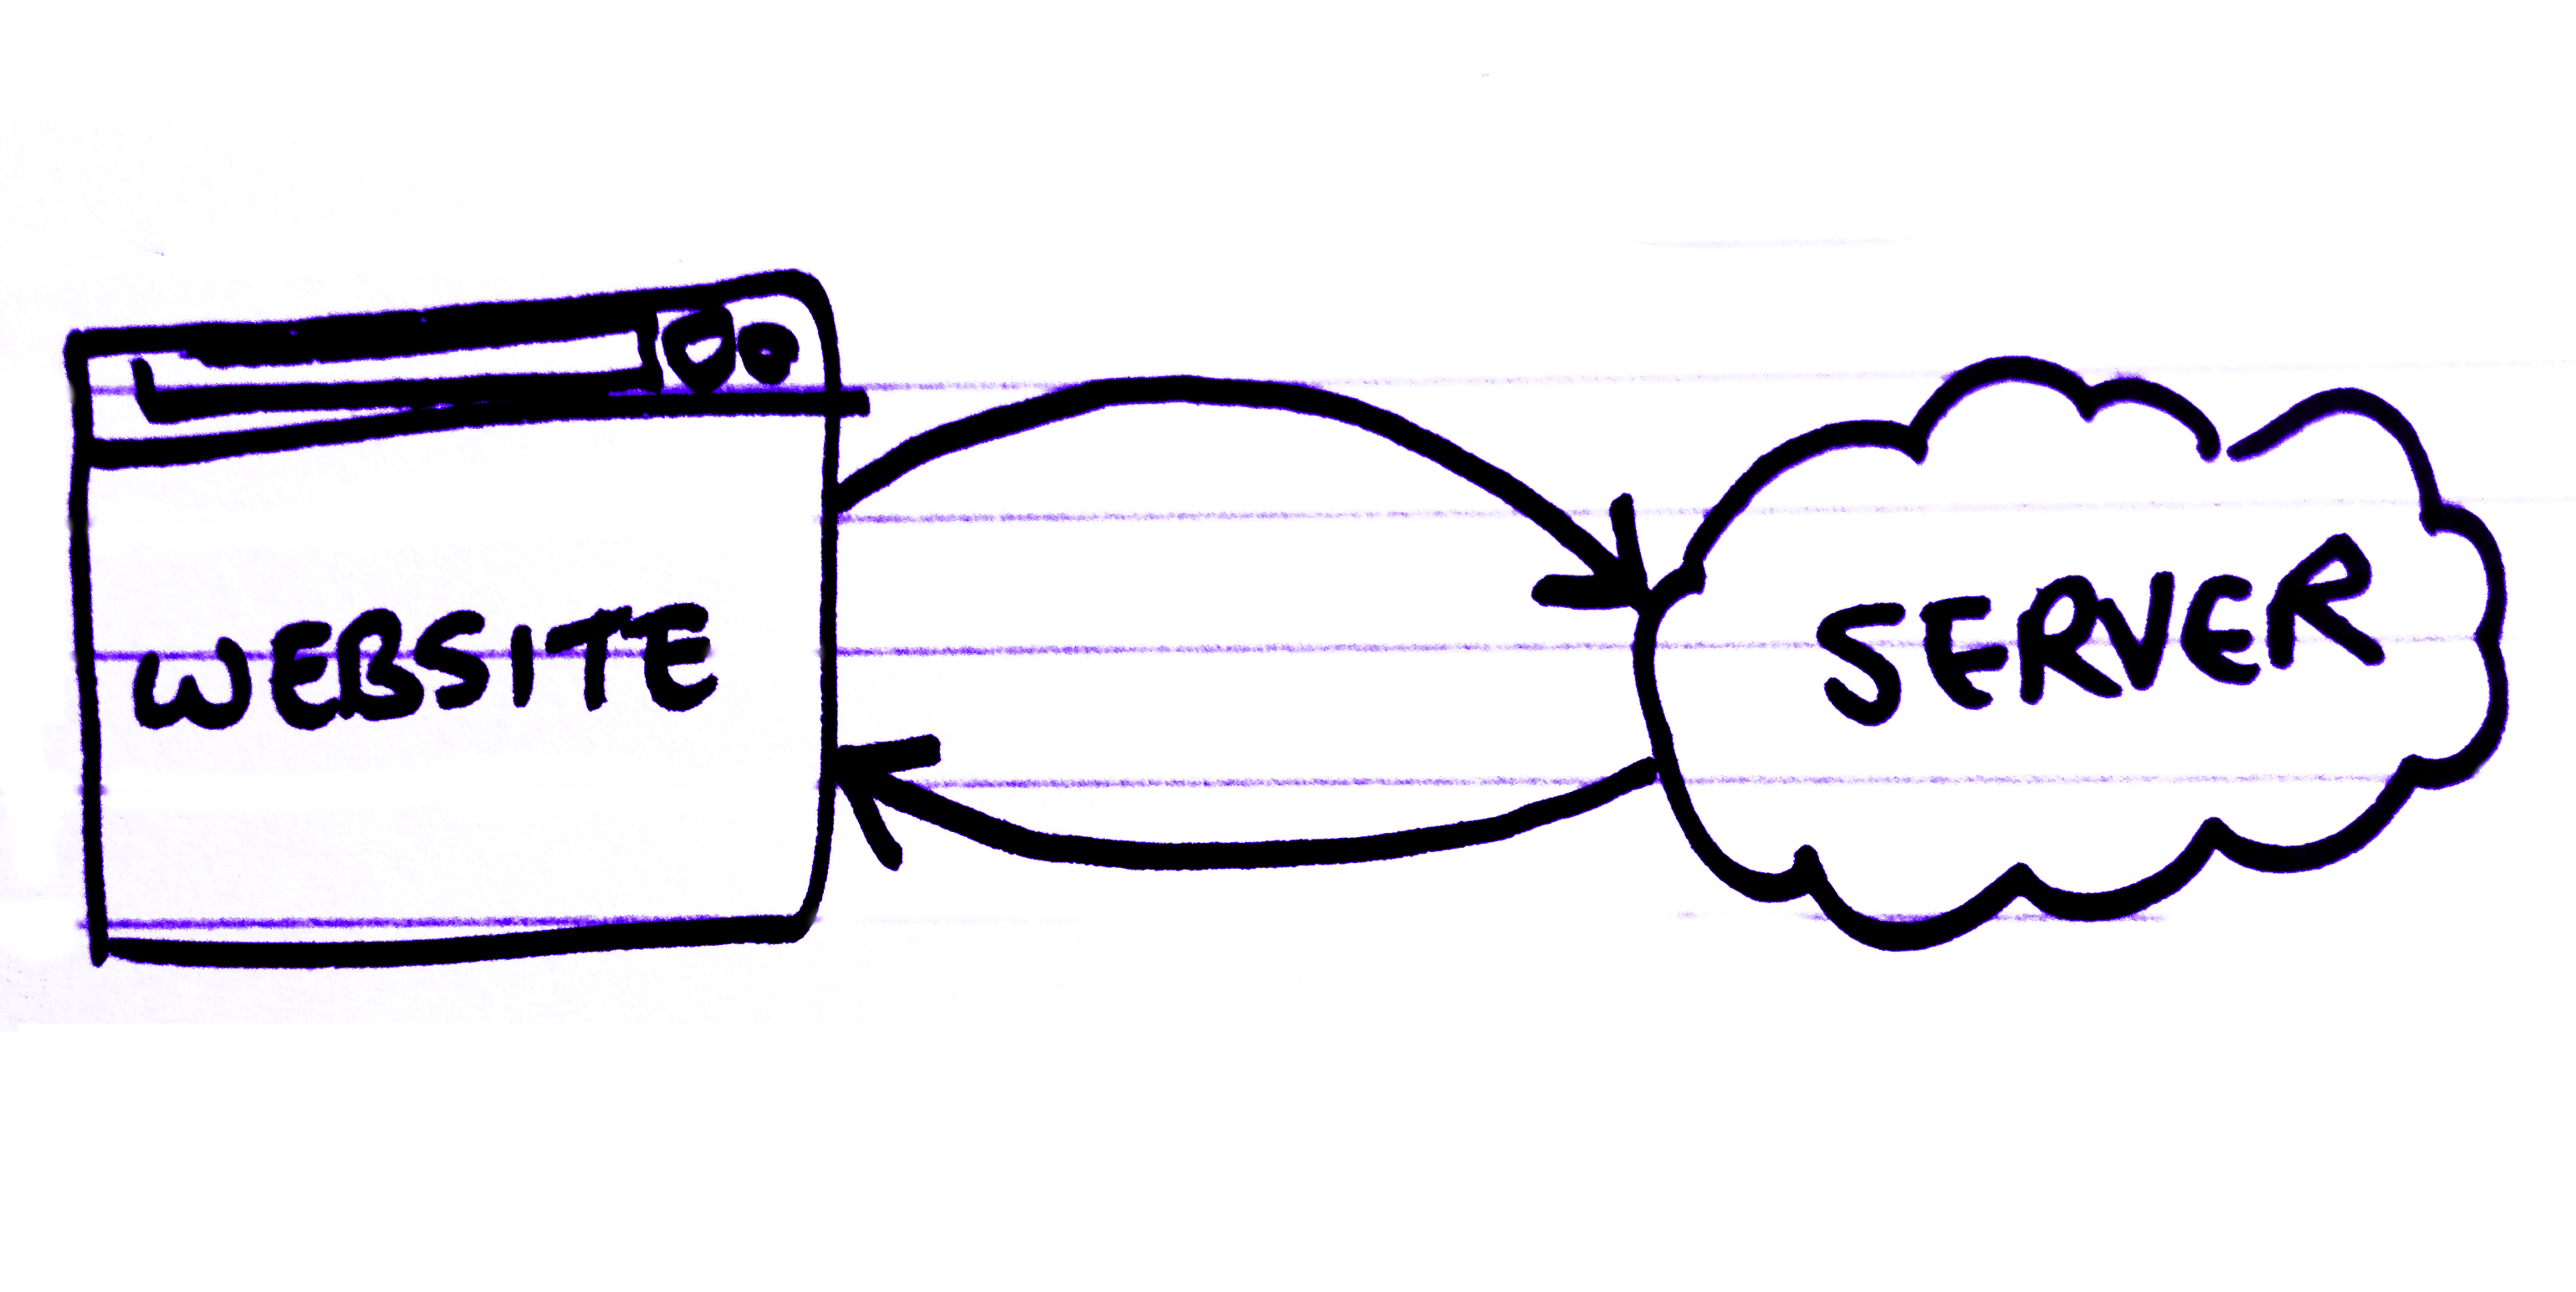 WEBSITE
SERVER